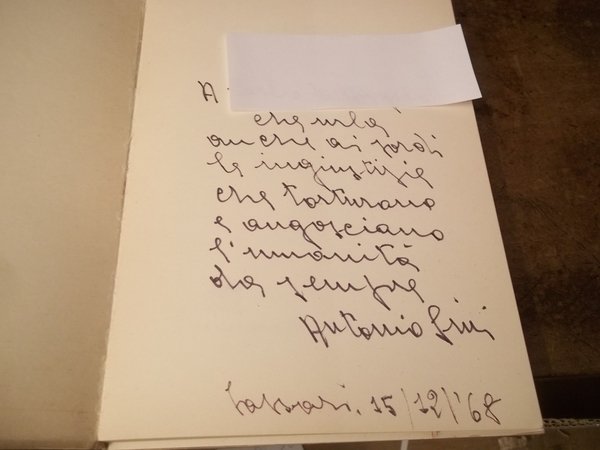 A
che urla
anche ai sordi
le ingiustizie
che torturano
e angosciano
l'umanità
da sempre
Antonio Sini
Sassari, 15/12/'68